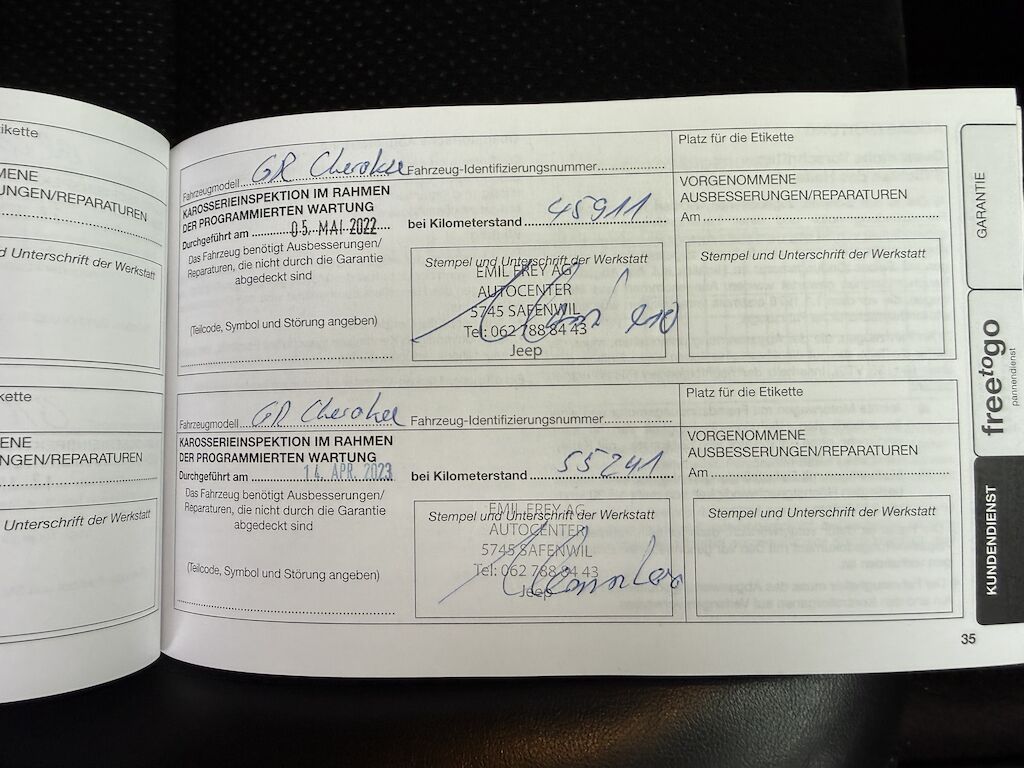 ikette
MENE
RUNGEN/REPARATUREN
nd Unterschrift der Werkstatt
kette
ENE
NGEN/REPARATUREN
Unterschrift der Werkstatt
Fahrzeugmodell GR Cherokee Fahrzeug-Identifizierungsnummer
KAROSSERIEINSPEKTION IM RAHMEN
DER PROGRAMMIERTEN WARTUNG
Durchgeführt am 05. MAI 2022 bei Kilometerstand 45911
Das Fahrzeug benötigt Ausbesserungen/
Reparaturen, die nicht durch die Garantie
abgedeckt sind
(Teilcode, Symbol und Störung angeben)
Stempel und Unterschrift der Werkstatt
EMIL FREY AG
AUTOCENTER
5745 SAFENWIL
Tel: 062 788 84 43
Jeep
Platz für die Etikette
VORGENOMMENE
AUSBESSERUNGEN/REPARATUREN
Am
Stempel und Unterschrift der Werkstatt
Fahrzeugmodell GR Cherokee Fahrzeug-Identifizierungsnummer
KAROSSERIEINSPEKTION IM RAHMEN
DER PROGRAMMIERTEN WARTUNG
Durchgeführt am 14. APR. 2023 bei Kilometerstand 55241
Das Fahrzeug benötigt Ausbesserungen/
Reparaturen, die nicht durch die Garantie
abgedeckt sind
(Teilcode, Symbol und Störung angeben)
Stempel und Unterschrift der Werkstatt
EMIL FREY AG
AUTOCENTER
5745 SAFENWIL
Tel: 062 788 84 43
Jeep
Platz für die Etikette
VORGENOMMENE
AUSBESSERUNGEN/REPARATUREN
Am
Stempel und Unterschrift der Werkstatt
GARANTIE
freetogo
pannendienst
KUNDENDIENST
35